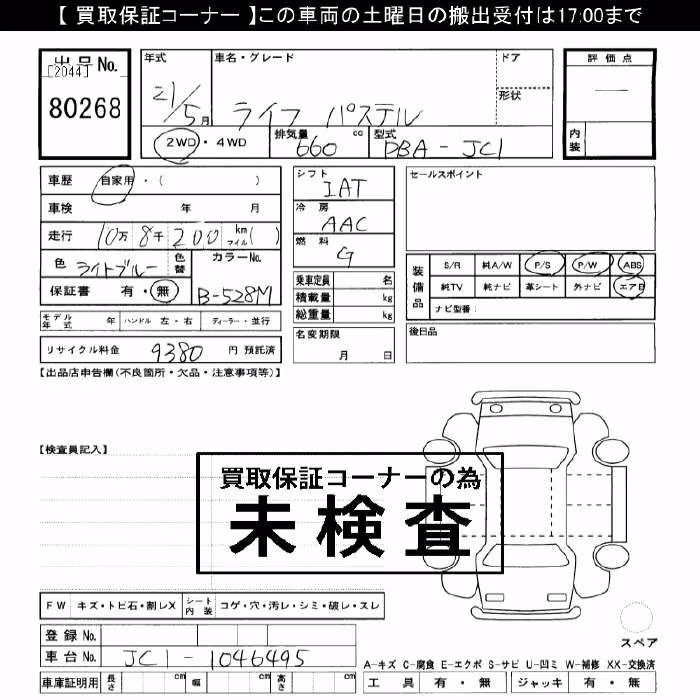 【 買取保証コーナー 】この車両の土曜日の搬出受付は17:00まで
出品 No.
[2044]
80268
年式 21/5月
車名・グレード ライフ パステル
ドア
形状
評価点
―
内装
2WD・4WD
排気量 660 cc
型式 DBA - JC1
車歴 自家用・( )
車検 年 月
走行 10万 8千 200 km マイル ( )
色 ライトブルー
色替
カラーNo. B-528M
保証書 有・無
モデル年式 年
ハンドル 左・右
ディーラー・並行
リサイクル料金 9380 円 預託済
シフト IAT
冷房 AAC
燃料 G
乗車定員 名
積載量 kg
総重量 kg
名変期限
月 日
セールスポイント
装備品
S/R 純A/W P/S P/W ABS
純TV 純ナビ 革シート 外ナビ エアB
ナビ型番:
後日品
【出品店申告欄(不良箇所・欠品・注意事項等)】
【検査員記入】
買取保証コーナーの為
未検査
FW キズ・トビ石・割レX
シート内装 コゲ・穴・汚レ・シミ・破レ・スレ
登録 No.
車台 No. JC1-1046495
車庫証明用 長さ cm 幅 cm 高さ cm
スペア
A-キズ C-腐食 E-エクボ S-サビ U-凹ミ W-補修 XX-交換済
工具 有・無 ジャッキ 有・無